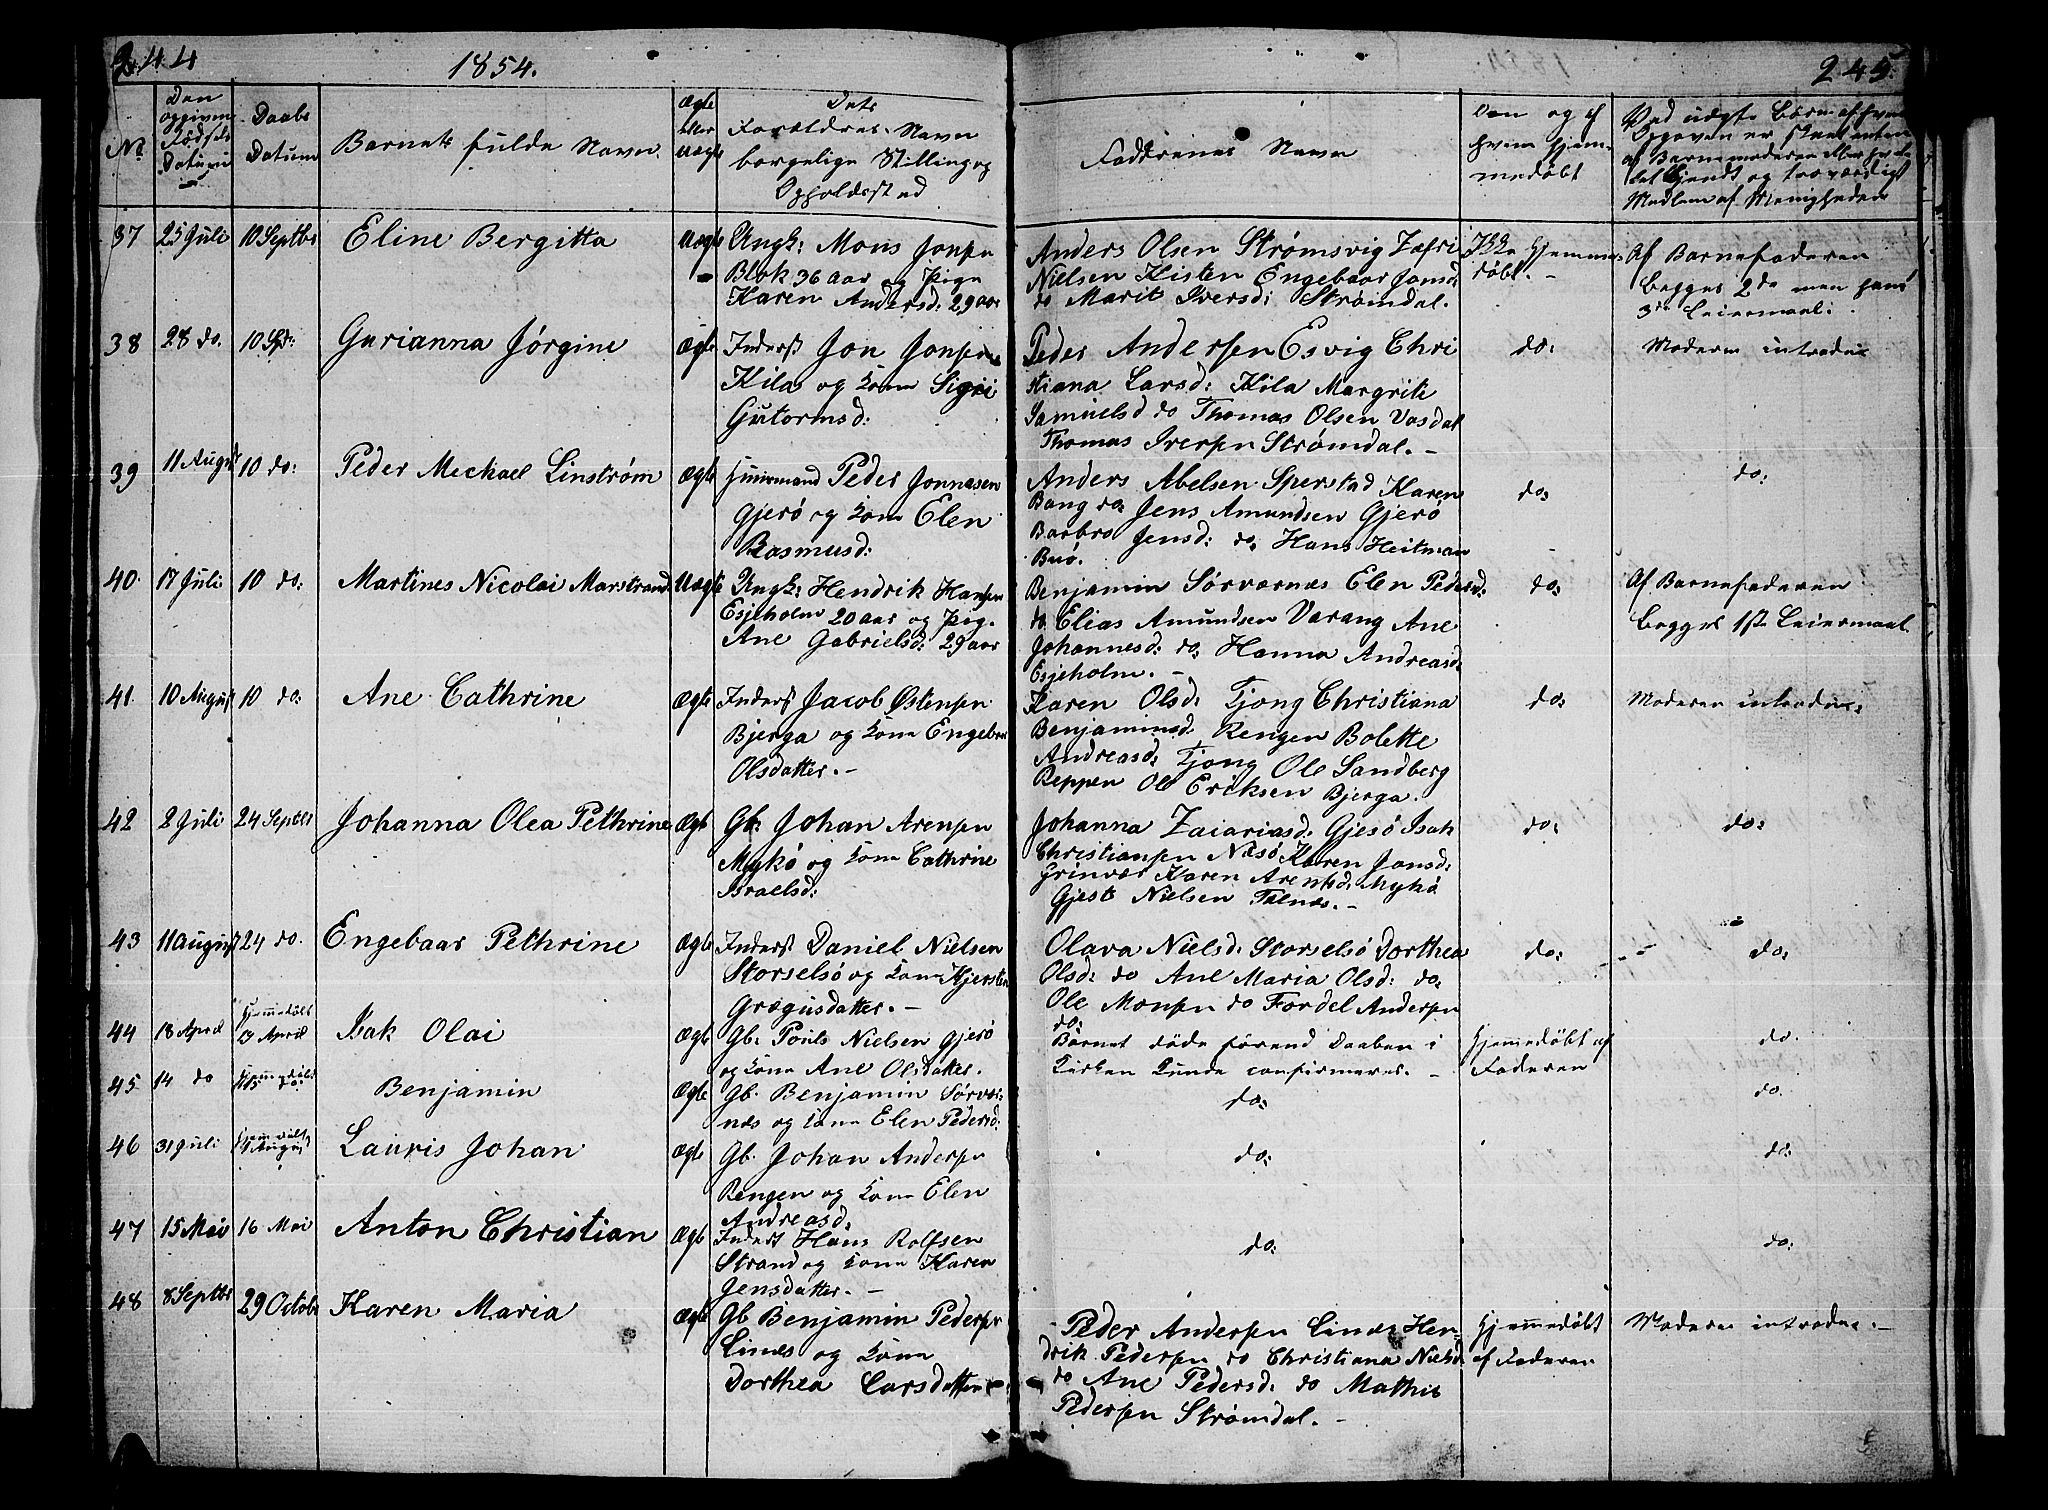 244
1854.
245.
No
Den opgivne Fødsels Datum
Daabs Datum
Barnets fulde Navn.
Ægte eller uægte
Dets Forældres Navn borgelige Stilling og Opholdssted
Faddrenes Navn
Naar og af hvem hjemmedøbt
Ved uægte Børn af hvem Opgaven er skeet enten af Barnemoderen eller
Medlem af Menigheden
37 25 Juli 10 Septbr Eline Bergitta Uægte Ungk: Mons Jonsen
Blok 36 aar og Pige
Karen Andersd: 29 aar
Anders Olsen Strømsvig Zefri
Nielsen Kisten Engebaar Jonsd:
do Marit Iversd: Strømdal.
Ikke hjemme-
døbt. -
Af Barnefaderen
begges 2de men hans
3die Leiermaal:
38 28 do. 10 Spt: Gurianna Jørgine Ægte Inderst Jon Jonsen
Kila og Kone Sigri
Gutormsd:
Peder Andersen Esvig Chri
stiana Larsd: Kila Margrite
Samuelsd do Thomas Olsen Vasdal
Thomas Iversen Strømdal. -
do:
Moderen introdu:
39 11 August 10 do: Peder Mechael Linstrøm Ægte Huusmand Peder Jonnasen
Gjerø og Kone Elen
Rasmusd:
Anders Abelsen Sperstad Karen
Bang do: Jens Amundsen Gjerø
Barbro Jensd: do. Hans Heitman
Buø.
do:
do:
40. 17 Juli 10 do: Martines Nicolai Marstrand Uægte Ungk: Hendrik Hansen
Esjeholm 20 aar og Pige
Ane Gabrielsd: 29 aar
Benjamin Sørværnes Elen Pedersd:
do Elias Amundsen Varang Ane
Johannesd: do: Hanna Andreasd:
Esjeholm. -
do:
Af Barnefaderen
begges 1ste Leiermaal
41. 10 August 10 do: Ane Cathrine Ægte Inderst Jacob Østensen
Bjerga og Kone Engebor
Olsdatter. -
Karen Olsd: Tjong Christiana
Benjaminsd: Rengen Bolette
Andreasd: Tjong Ole Sandberg
Reppen Ole Eriksen Bjerga.
do:
Moderen introdu:
42 2 Juli 24 Septbr Johanna Olea Pethrine Ægte Gb: Johan Arensen
Mykø og Kone Cathrine
Israelsd:
Johanna Zaiariasd: Gjesø Isak
Christiansen Næsø Karen Jonsd:
Grinvær Karen Arentsd: Mykø
Gjest Nielsen Telnæs. -
do:
do:
43 11 August 24 do. Engebaar Pethrine Ægte Inderst Daniel Nielsen
Storselsø og Kone Kjersten
Grægusdatter. -
Olava Nielsd: Storselsø Dorthea
Olsd: do Ane Maria Olsd: do:
Ole Monsen do Fordel Andersen
do:
do:
do:
44 18 April Hjemmedøbt
April Isak Olai Ægte Gb: Pouls Nielsen Gjerø
og Kone Ane Olsdatter.
Barnet døde førend Daaben i
Kirken kunde confirmeres. -
Hjemmedøbt af
Faderen
do.
45 14 do Hjemmedøbt
do Benjamin Ægte Gb. Benjamin Sørvær-
næs og Kone Elen Pedersd:
do:
do.
46 31 Juli Hjemmedøbt
August Lauris Johan Ægte Gb. Johan Andersen
Rengen og Kone Elen
Andreasd.
do:
do:
47 15 Mai 16 Mai Anton Christian Ægte Inderst Hans Rolfsen
Strand og Kone Karen
Jensdatter. -
do:
do:
48 8 Septbr 29 Octobr Karen Maria Ægte Gb Benjamin Pedersen
Linæs og Kone
Dorthea Larsdatter
Peder Andersen Linæs Hen-
drik Pedersen do Christiana Nielsd
do Ane Pedersd: do Mathis
Pedersen Strømdal. -
Hjemmedøbt
af Faderen
Moderen introdu. -